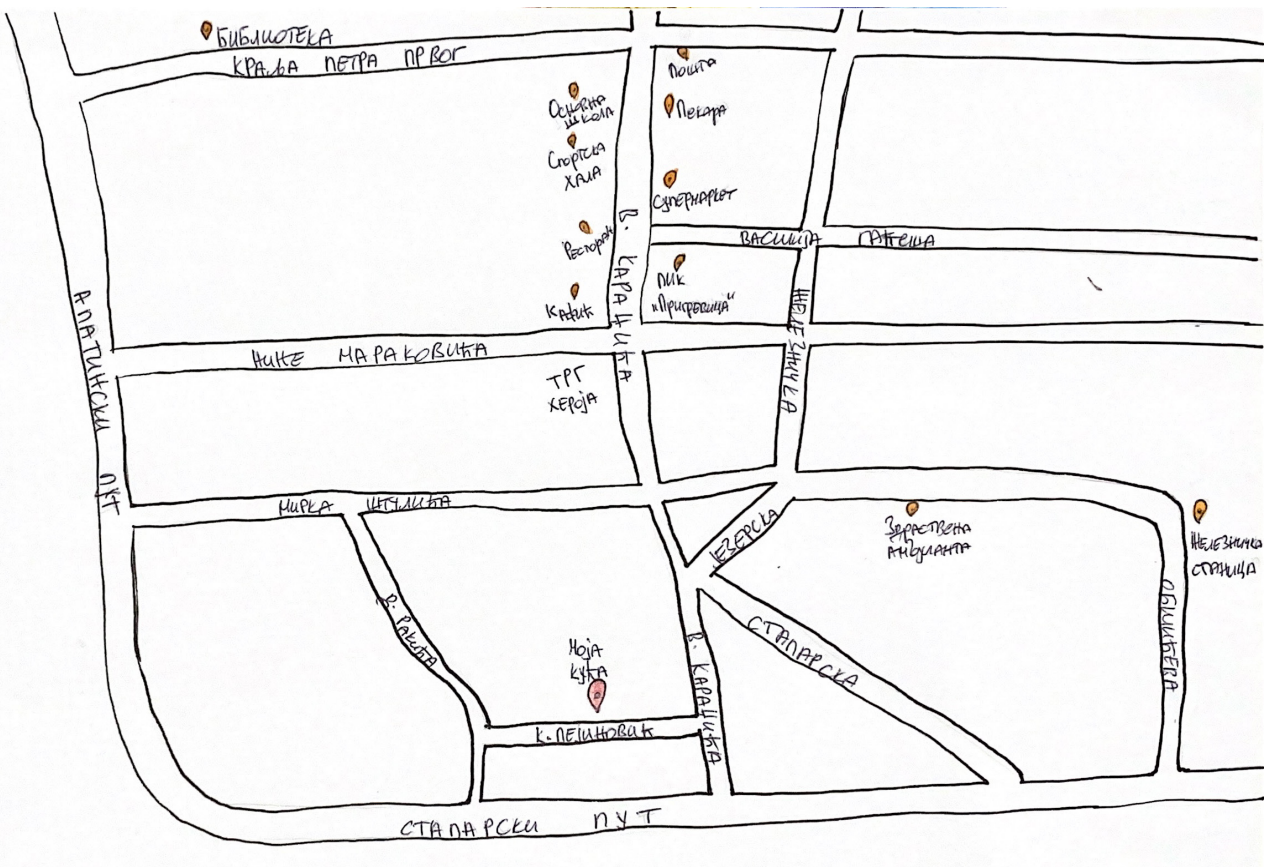 БИБЛИОТЕКА
КРАЉА ПЕТРА ПРВОГ
Пошта
Основна
школа
Пекара
Спортска
хала
Супермаркет
Ресторан
В. КАРАЏИЋА
ВАСИЉА ГАЋЕША
ПИК
„Пригревица"
Кафић
ЖЕЛЕЗНИЧКА
АПАТИНСКИ ПУТ
НИНЕ МАРАКОВИЋА
ТРГ
ХЕРОЈА
МИРКА ШТУЛИЋА
ЈЕЗЕРСКА
Здраствена
амбуланта
Железничка
станица
В. РАКИЋА
ОБИЛИЋЕВА
СТАПАРСКА
Моја
кућа
В. КАРАЏИЋА
К. ПЕЈИНОВИЋ
СТАПАРСКИ ПУТ